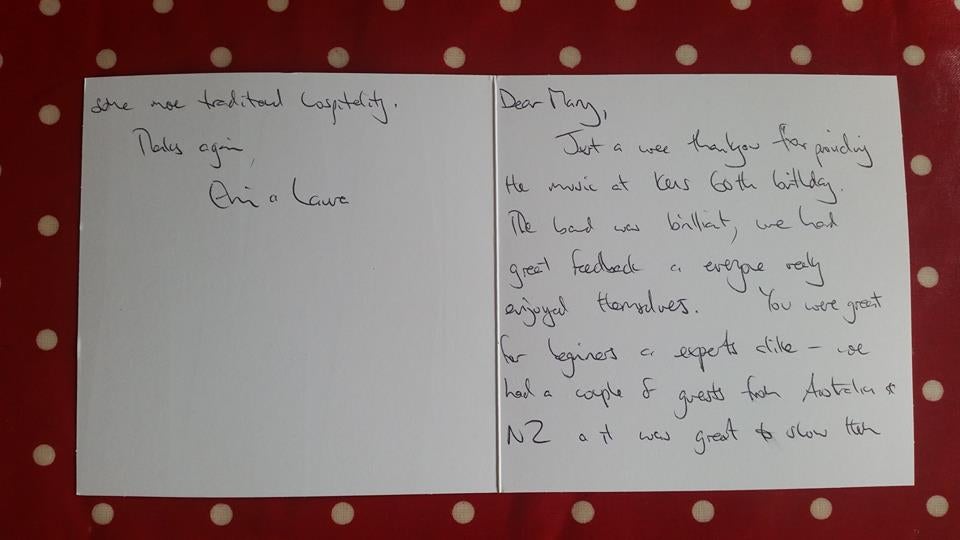 Dear Mary,
Just a wee thankyou for providing
the music at Kens 60th birthday.
The band was brilliant, we had
great feedback & everyone really
enjoyed themselves. You were great
for beginers & experts alike – we
had a couple of guests from Australia &
NZ & it was great to show them
some more traditional hospitality.
Thanks again,
& Laura